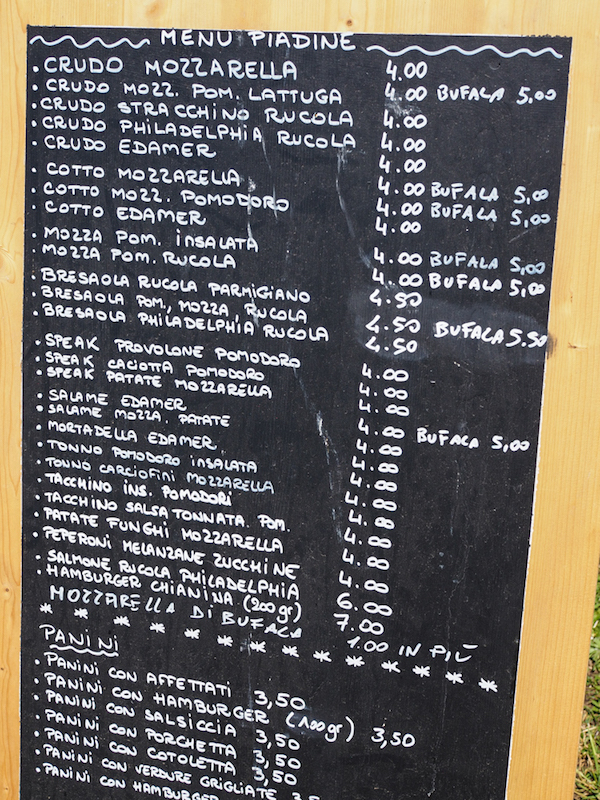 MENU PIADINE
• CRUDO MOZZARELLA 4.00
• CRUDO MOZZ. POM. LATTUGA 4.00 BUFALA 5,00
• CRUDO STRACCHINO RUCOLA 4.00
• CRUDO PHILADELPHIA RUCOLA 4.00
• CRUDO EDAMER 4.00
• COTTO MOZZARELLA 4.00 BUFALA 5,00
• COTTO MOZZ. POMODORO 4.00 BUFALA 5,00
COTTO EDAMER 4.00
• MOZZA POM. INSALATA 4.00 BUFALA 5,00
• MOZZA POM. RUCOLA 4.00 BUFALA 5,00
• BRESAOLA RUCOLA PARMIGIANO 4.50
• BRESAOLA POM., MOZZA, RUCOLA 4.50 BUFALA 5.50
• BRESAOLA PHILADELPHIA RUCOLA 4.50
• SPEAK PROVOLONE POMODORO 4.00
• SPEAK CACIOTTA POMODORO 4.00
• SPEAK PATATE MOZZARELLA 4.00
• SALAME EDAMER 4.00 BUFALA 5,00
• SALAME MOZZA. PATATE 4.00
• MORTADELLA EDAMER 4.00
• TONNO POMODORO INSALATA 4.00
• TONNO CARCIOFINI MOZZARELLA 4.00
• TACCHINO INS. POMODORI 4.00
• TACCHINO SALSA TONNATA. POM. 4.00
• PATATE FUNGHI MOZZARELLA 4.00
• PEPERONI MELANZANE ZUCCHINE 4.00
• SALMONE RUCOLA PHILADELPHIA 6.00
• HAMBURGER CHIANINA (200 gr) 7.00
MOZZARELLA DI BUFALA 1.00 IN PIÙ
* * * * * * * * * * * * *
PANINI
• PANINI CON AFFETTATI 3,50
• PANINI CON HAMBURGER (100 gr) 3,50
• PANINI CON SALSICCIA 3,50
• PANINI CON PORCHETTA 3,50
• PANINI CON COTOLETTA 3,50
• PANINI CON VERDURE GRIGLIATE
• PANINI CON HAMBURGER